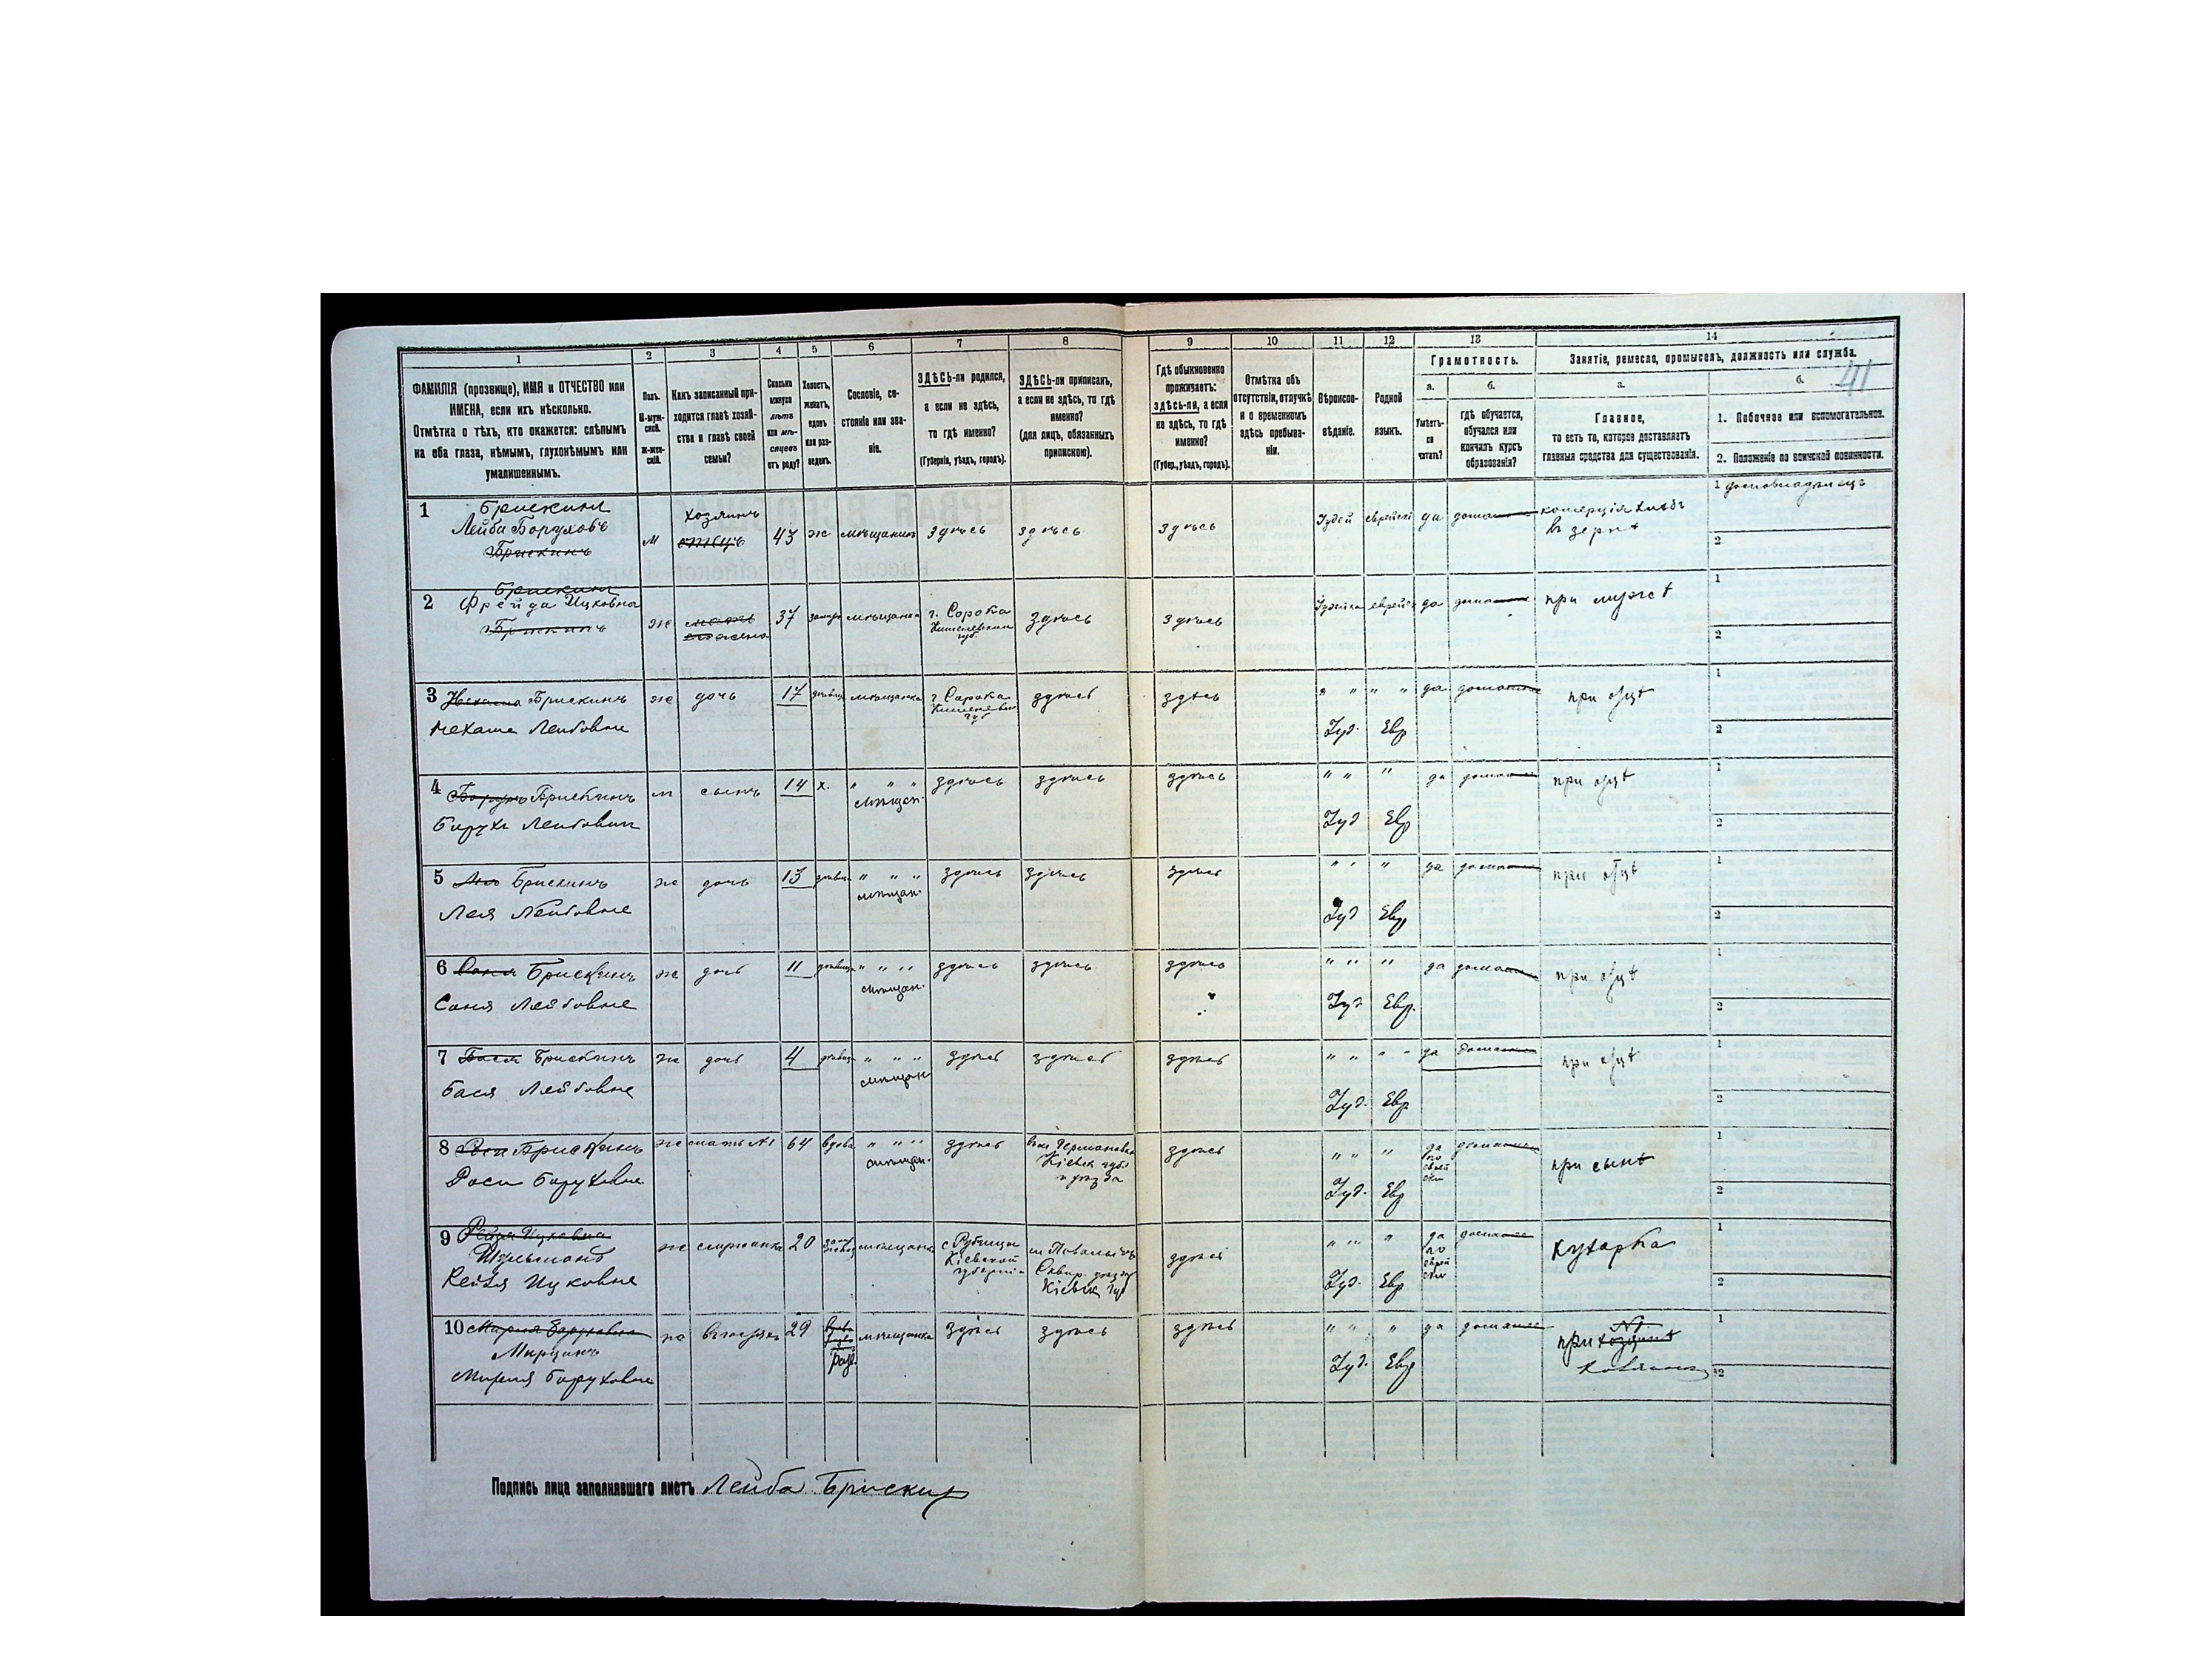 1 2 3 4 5 6 7 8 9 10 11 12 13 14
ФАМИЛІЯ (прозвище), ИМЯ и ОТЧЕСТВО или
ИМЕНА, если ихъ нѣсколько.
Отмѣтка о тѣхъ, кто окажется: слѣпымъ
на оба глаза, нѣмымъ, глухонѣмымъ или
умалишеннымъ.
Полъ.
М-муж-
ской.
Ж-жен-
скій.
Какъ записанный при-
ходится главѣ хозяй-
ства и главѣ своей
семьи?
Сколько
минуло
лѣтъ
или мѣ-
сяцевъ
отъ роду?
Холостъ,
женатъ,
вдовъ
или раз-
веденъ.
Сословіе, со-
стояніе или зва-
ніе.
ЗДѢСЬ-ли родился,
а если не здѣсь,
то гдѣ именно?
(Губернія, уѣздъ, городъ).
ЗДѢСЬ-ли приписанъ,
а если не здѣсь, то гдѣ
именно?
(для лицъ, обязанныхъ
припискою).
Гдѣ обыкновенно
проживаетъ:
ЗДѢСЬ-ли, а если
не здѣсь, то гдѣ
именно?
(Губер., уѣздъ, городъ).
Отмѣтка объ
отсутствіи, отлучкѣ
и о временномъ
здѣсь пребыва-
ніи.
Вѣроиспо-
вѣданіе.
Родной
языкъ.
Грамотность.
а.
Умѣетъ-
ли
читать?
б.
гдѣ обучается,
обучался или
кончилъ курсъ
образованія?
Занятіе, ремесло, промыселъ, должность или служба.
41
а.
Главное,
то есть то, которое доставляетъ
главныя средства для существованія.
б.
1. Побочное или вспомогательное.
2. Положеніе по воинской повинности.
1 Брискинъ
Лейба Боруховъ
Брискинъ
м хозяинъ 43 ж мѣщанинъ здѣсь здѣсь здѣсь Іудей еврейскі да дома коммерція хлѣбъ
въ зернѣ
1 домовладѣлецъ
2
2 Брискинъ
Фрейда Ицковна
Брискинъ
ж 37 замуж мѣщанка г. Сорока
Кишеневской
губ.
здѣсь здѣсь Іудейка еврейск да дома при мужѣ
1
2
3 Брискинъ
Нехама Лейбовна
ж дочь 17 дѣвица мѣщанка г Сорока
Кишеневск
губ
здѣсь здѣсь " " " " да дома при отцѣ
Іуд. Евр
1
2
4 Борухъ Брискинъ
Борухъ Лейбовичъ
м сынъ 14 х. " " "
мѣщан.
здѣсь здѣсь здѣсь " " " да дома при отцѣ
Іуд Евр
1
2
5 Лея Брискинъ
Лея Лейбовна
ж дочь 13 дѣвица " " "
мѣщан.
здѣсь здѣсь здѣсь " " " да дома при отцѣ
Іуд Евр
1
2
6 Соня Брискинъ
Соня Лейбовна
ж дочь 11 дѣвица " " "
мѣщан.
здѣсь здѣсь здѣсь " " " да дома при отцѣ
Іуд Евр.
1
2
7 Бася Брискинъ
Бася Лейбовна
ж дочь 4 дѣвица " " "
мѣщан
здѣсь здѣсь здѣсь " " " " да дома при отцѣ
Іуд. Евр
1
2
8 Брискинъ
Рося Боруховна
ж мать №1 64 вдова " " "
мѣщан.
здѣсь
Кіевск губ.
уѣзда
здѣсь " " " да
по
еврей
ски
дома при сынѣ
Іуд. Евр
1
2
9 Рейзя Ицковна
Рейзя Ицковна
ж служанка 20 мѣщанка
Кіевской
губерніи
Сквир. уѣзда
Кіевск губ
здѣсь " " " да
по
еврей
ски
дома кухарка
Іуд. Евр
1
2
10 Мирия Боруховна
Мирия Боруховна
ж 29
разв.
мѣщанка здѣсь здѣсь здѣсь " " " да дома при
хозяинѣ
Іуд. Евр
1
2
Подпись лица заполнявшаго листъ Лейба Брискинъ